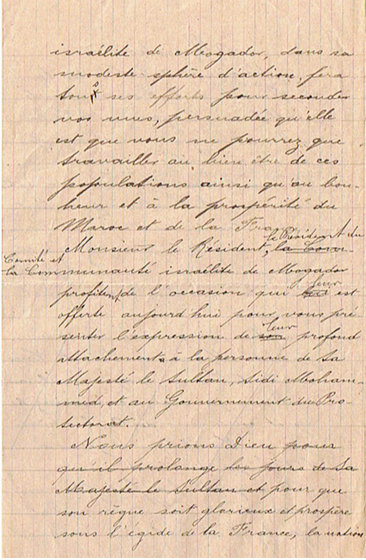 israélite de Mogador, dans sa
modeste sphère d'action, fera
tous ses efforts pour seconder
vos vues, persuadée qu'elle
est que vous ne pourrez que
travailler au bien être de ces
populations ainsi qu'au bon-
heur et à la prospérité du
Maroc et de la France
le Président du
Monsieur le Résident, la Com
Comité et
la Communauté israélite de Mogador
profitent de l'occasion qui leur est
offerte aujourd'hui pour vous pré
senter l'expression de leur profond
attachement à la personne de Sa
Majesté le Sultan, Sidi Moham-
med, et au Gouvernement du Pro-
tectorat.
Nous prions Dieu pour
qu'il prolonge les jours de Sa
Majesté le Sultan et pour que
son règne soit glorieux et prospère
sous l'égide de la France, la nation